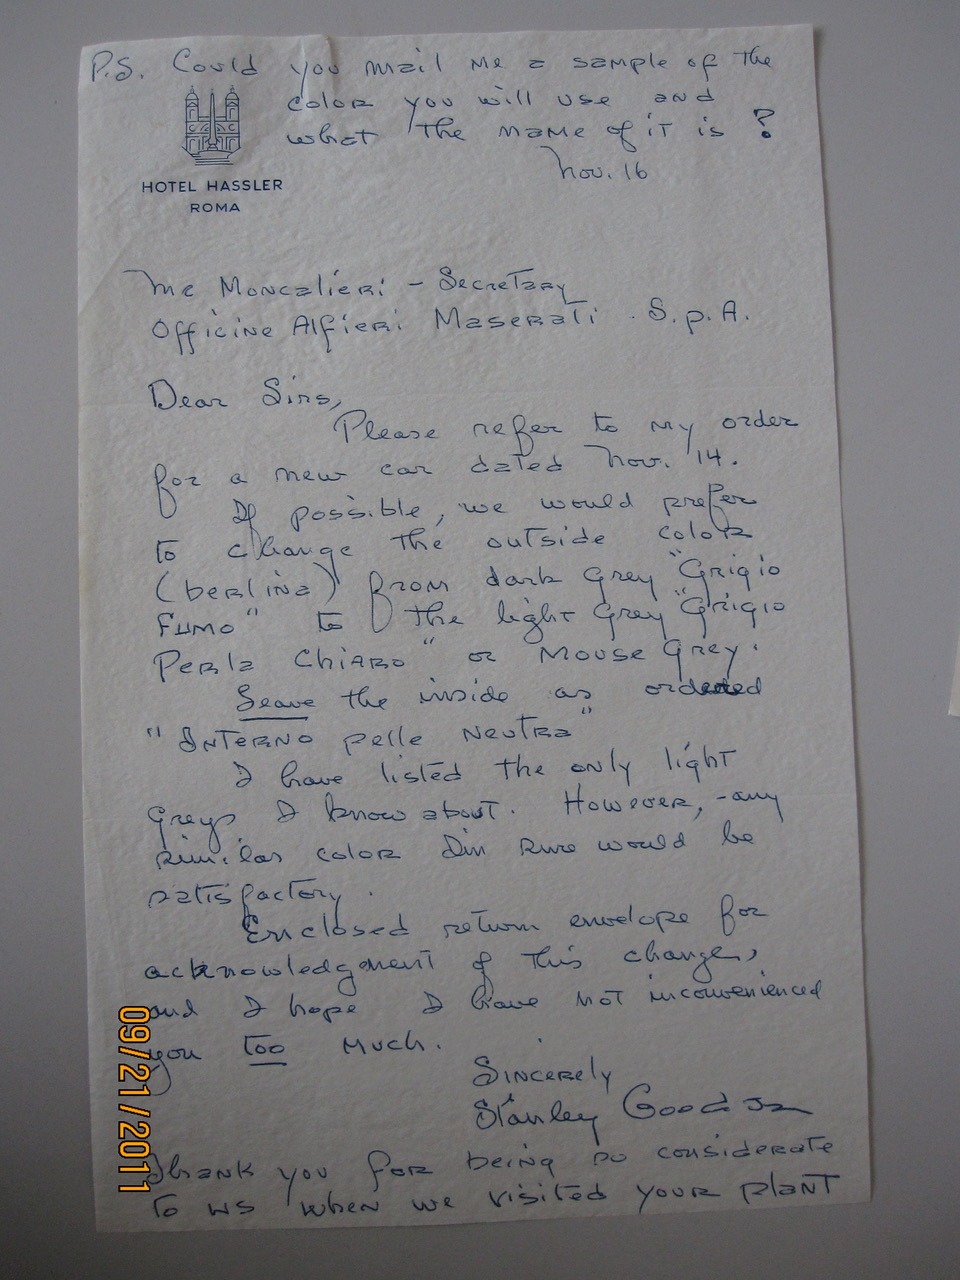 P.S. Could you mail me a sample of the
color you will use and
what the name of it is ?
Nov. 16
HOTEL HASSLER
ROMA
Mr Moncalieri - Secretary
Officine Alfieri Maserati . S.p.A.
Dear Sirs,
Please refer to my order
for a new car dated Nov. 14.
If possible, we would prefer
to change the outside color
(berlina) from dark grey "Grigio
Fumo" to the light grey "Grigio
Perla Chiaro" or Mouse Grey.
Leave the inside as ordered
"Interno pelle neutra"
I have listed the only light
greys I know about. However, - any
similar color I'm sure would be
satisfactory.
Enclosed return envelope for
acknowledgment of this change,
and I hope I have not inconvenienced
you too much.
Sincerely
Stanley Good Jr
Thank you for being so considerate
to us when we visited your plant
09/21/2011